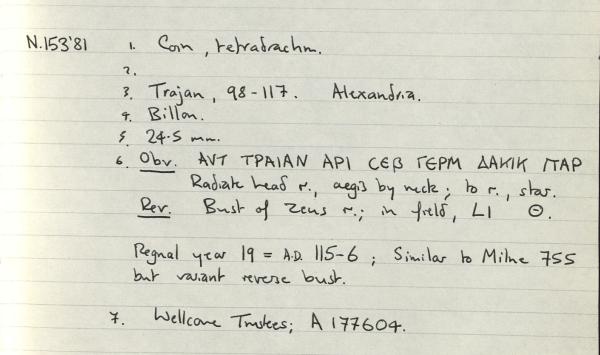 N.153'81 1. Coin, tetradrachm.
2.
3. Trajan, 98-117. Alexandria.
4. Billon.
5. 24.5 mm.
6. Obv. ΑVΤ ΤΡΑΙΑΝ ΑΡΙ CΕΒ ΓΕΡΜ ΔΑΚΙΚ ΠΑΡ
Radiate head r., aegis by neck; to r., star.
Rev. Bust of Zeus r.; in field, LI Θ.
Regnal year 19 = A.D. 115-6; Similar to Milne 755
but variant reverse bust.
7. Wellcome Trustees; A 177604.